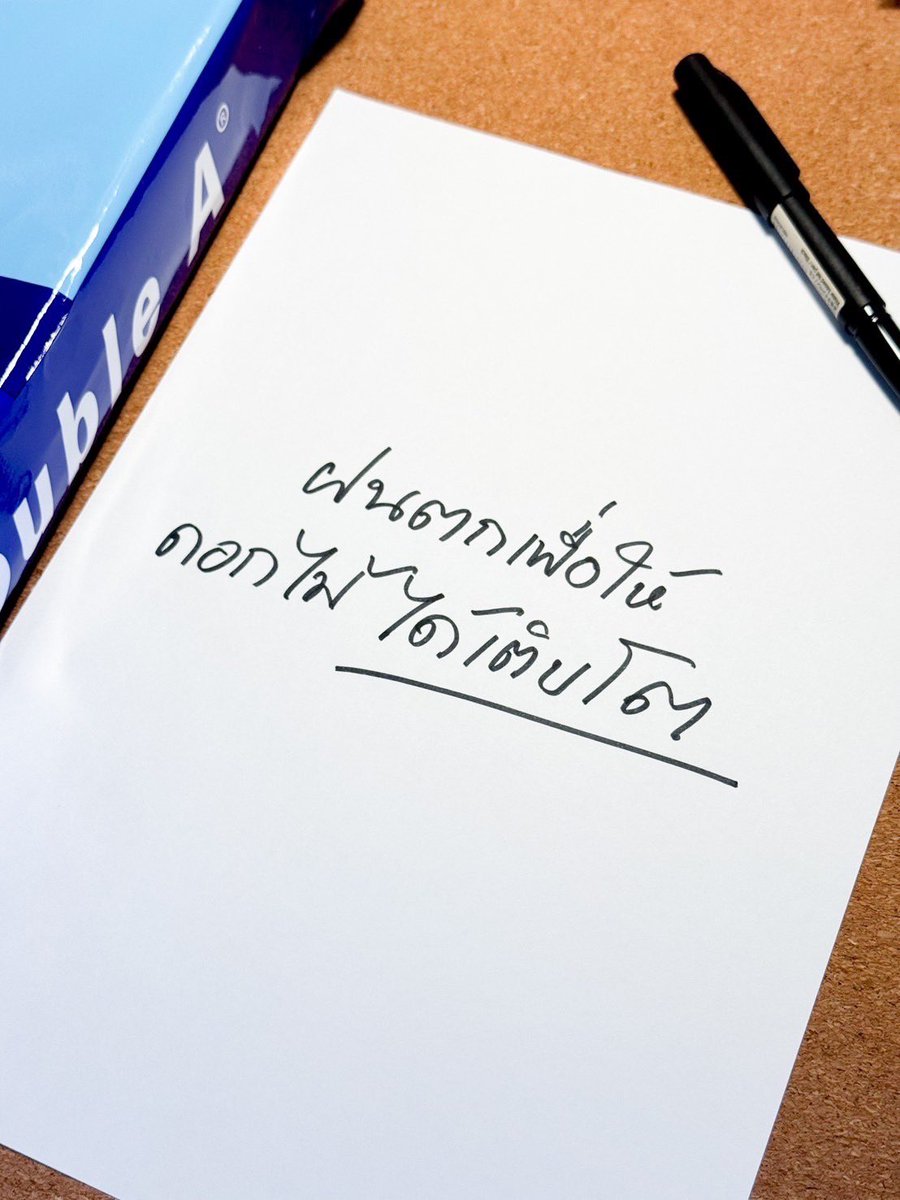 Double A®
ฝนตกเพื่อให้
ดอกไม้ได้เติบโต